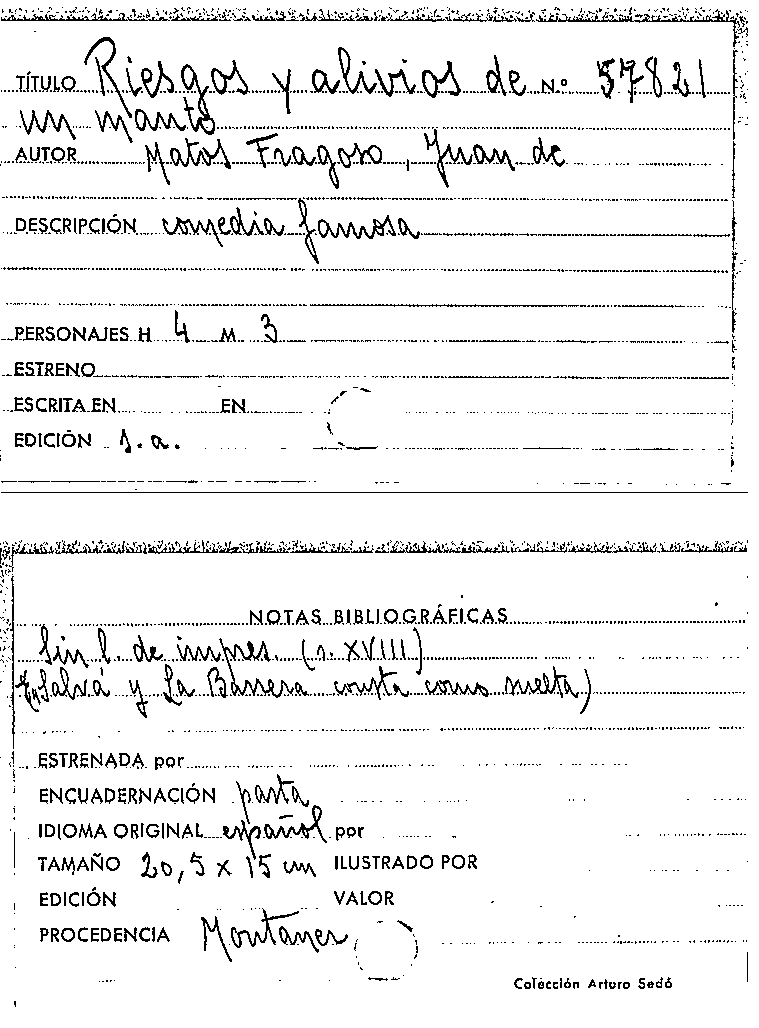 TÍTULO Riesgos y alivios de N.º 57821
un manto
AUTOR Matos Fragoso, Juan de
DESCRIPCIÓN comedia famosa
PERSONAJES H 4 M 3
ESTRENO
ESCRITA EN EN
EDICIÓN s.a.
NOTAS BIBLIOGRÁFICAS
Sin l. de impres. (s. XVIII)
(En Salvá y La Barrera consta como suelta)
ESTRENADA por
ENCUADERNACIÓN pasta
IDIOMA ORIGINAL español por
TAMAÑO 20,5 x 15 cm ILUSTRADO POR
EDICIÓN VALOR
PROCEDENCIA Montaner
Colección Arturo Sedó